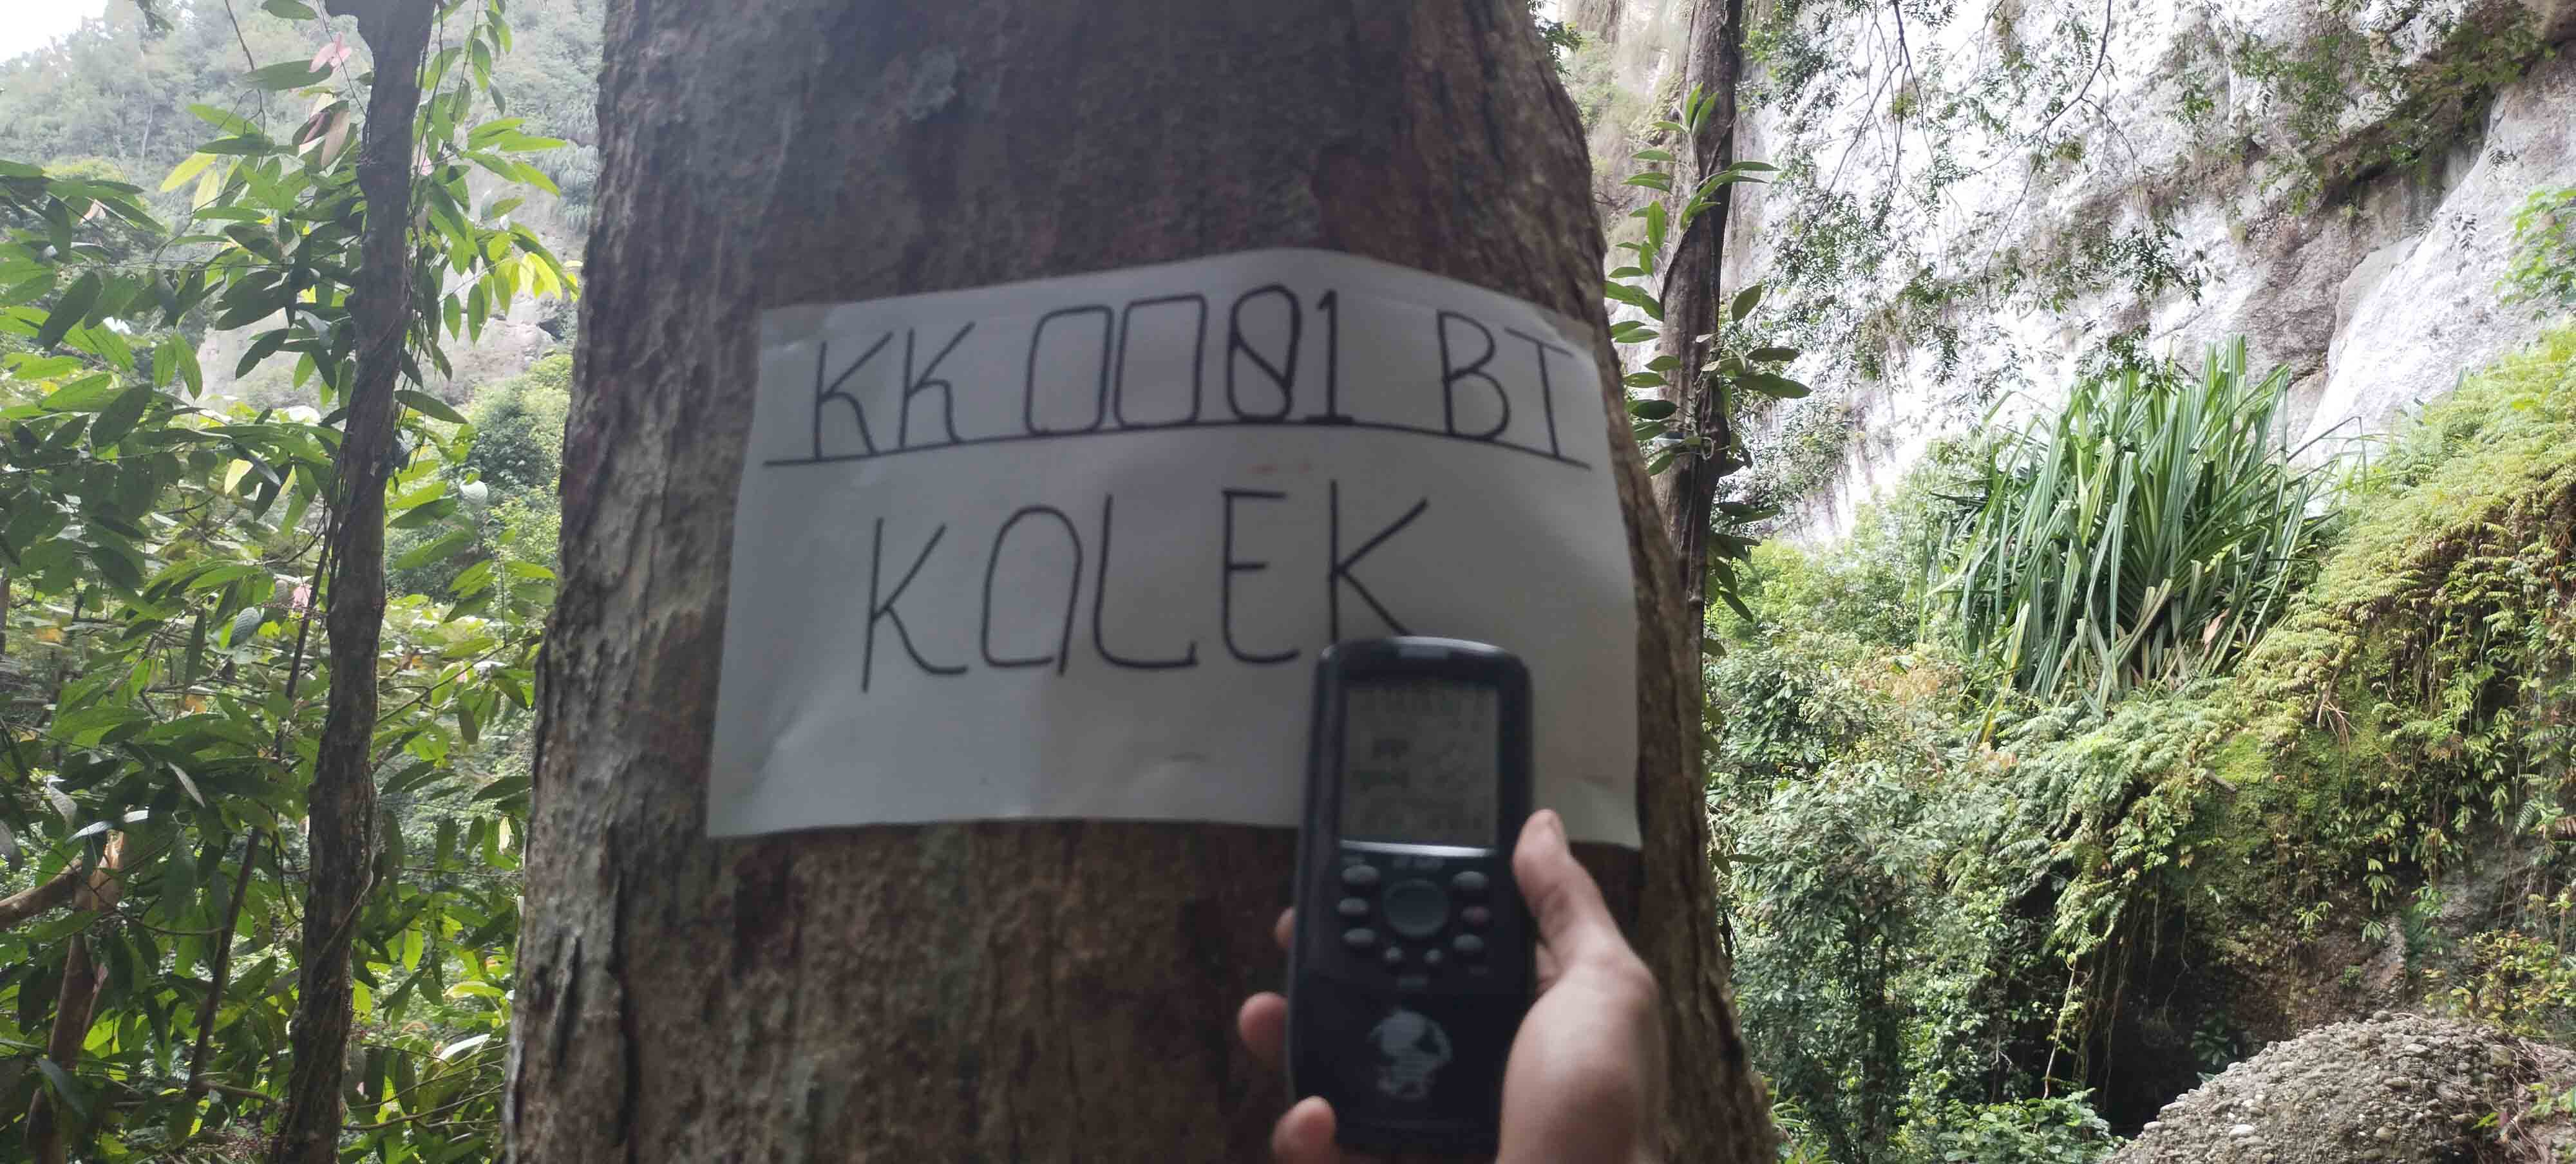 KK 0081 BT
KOLEK